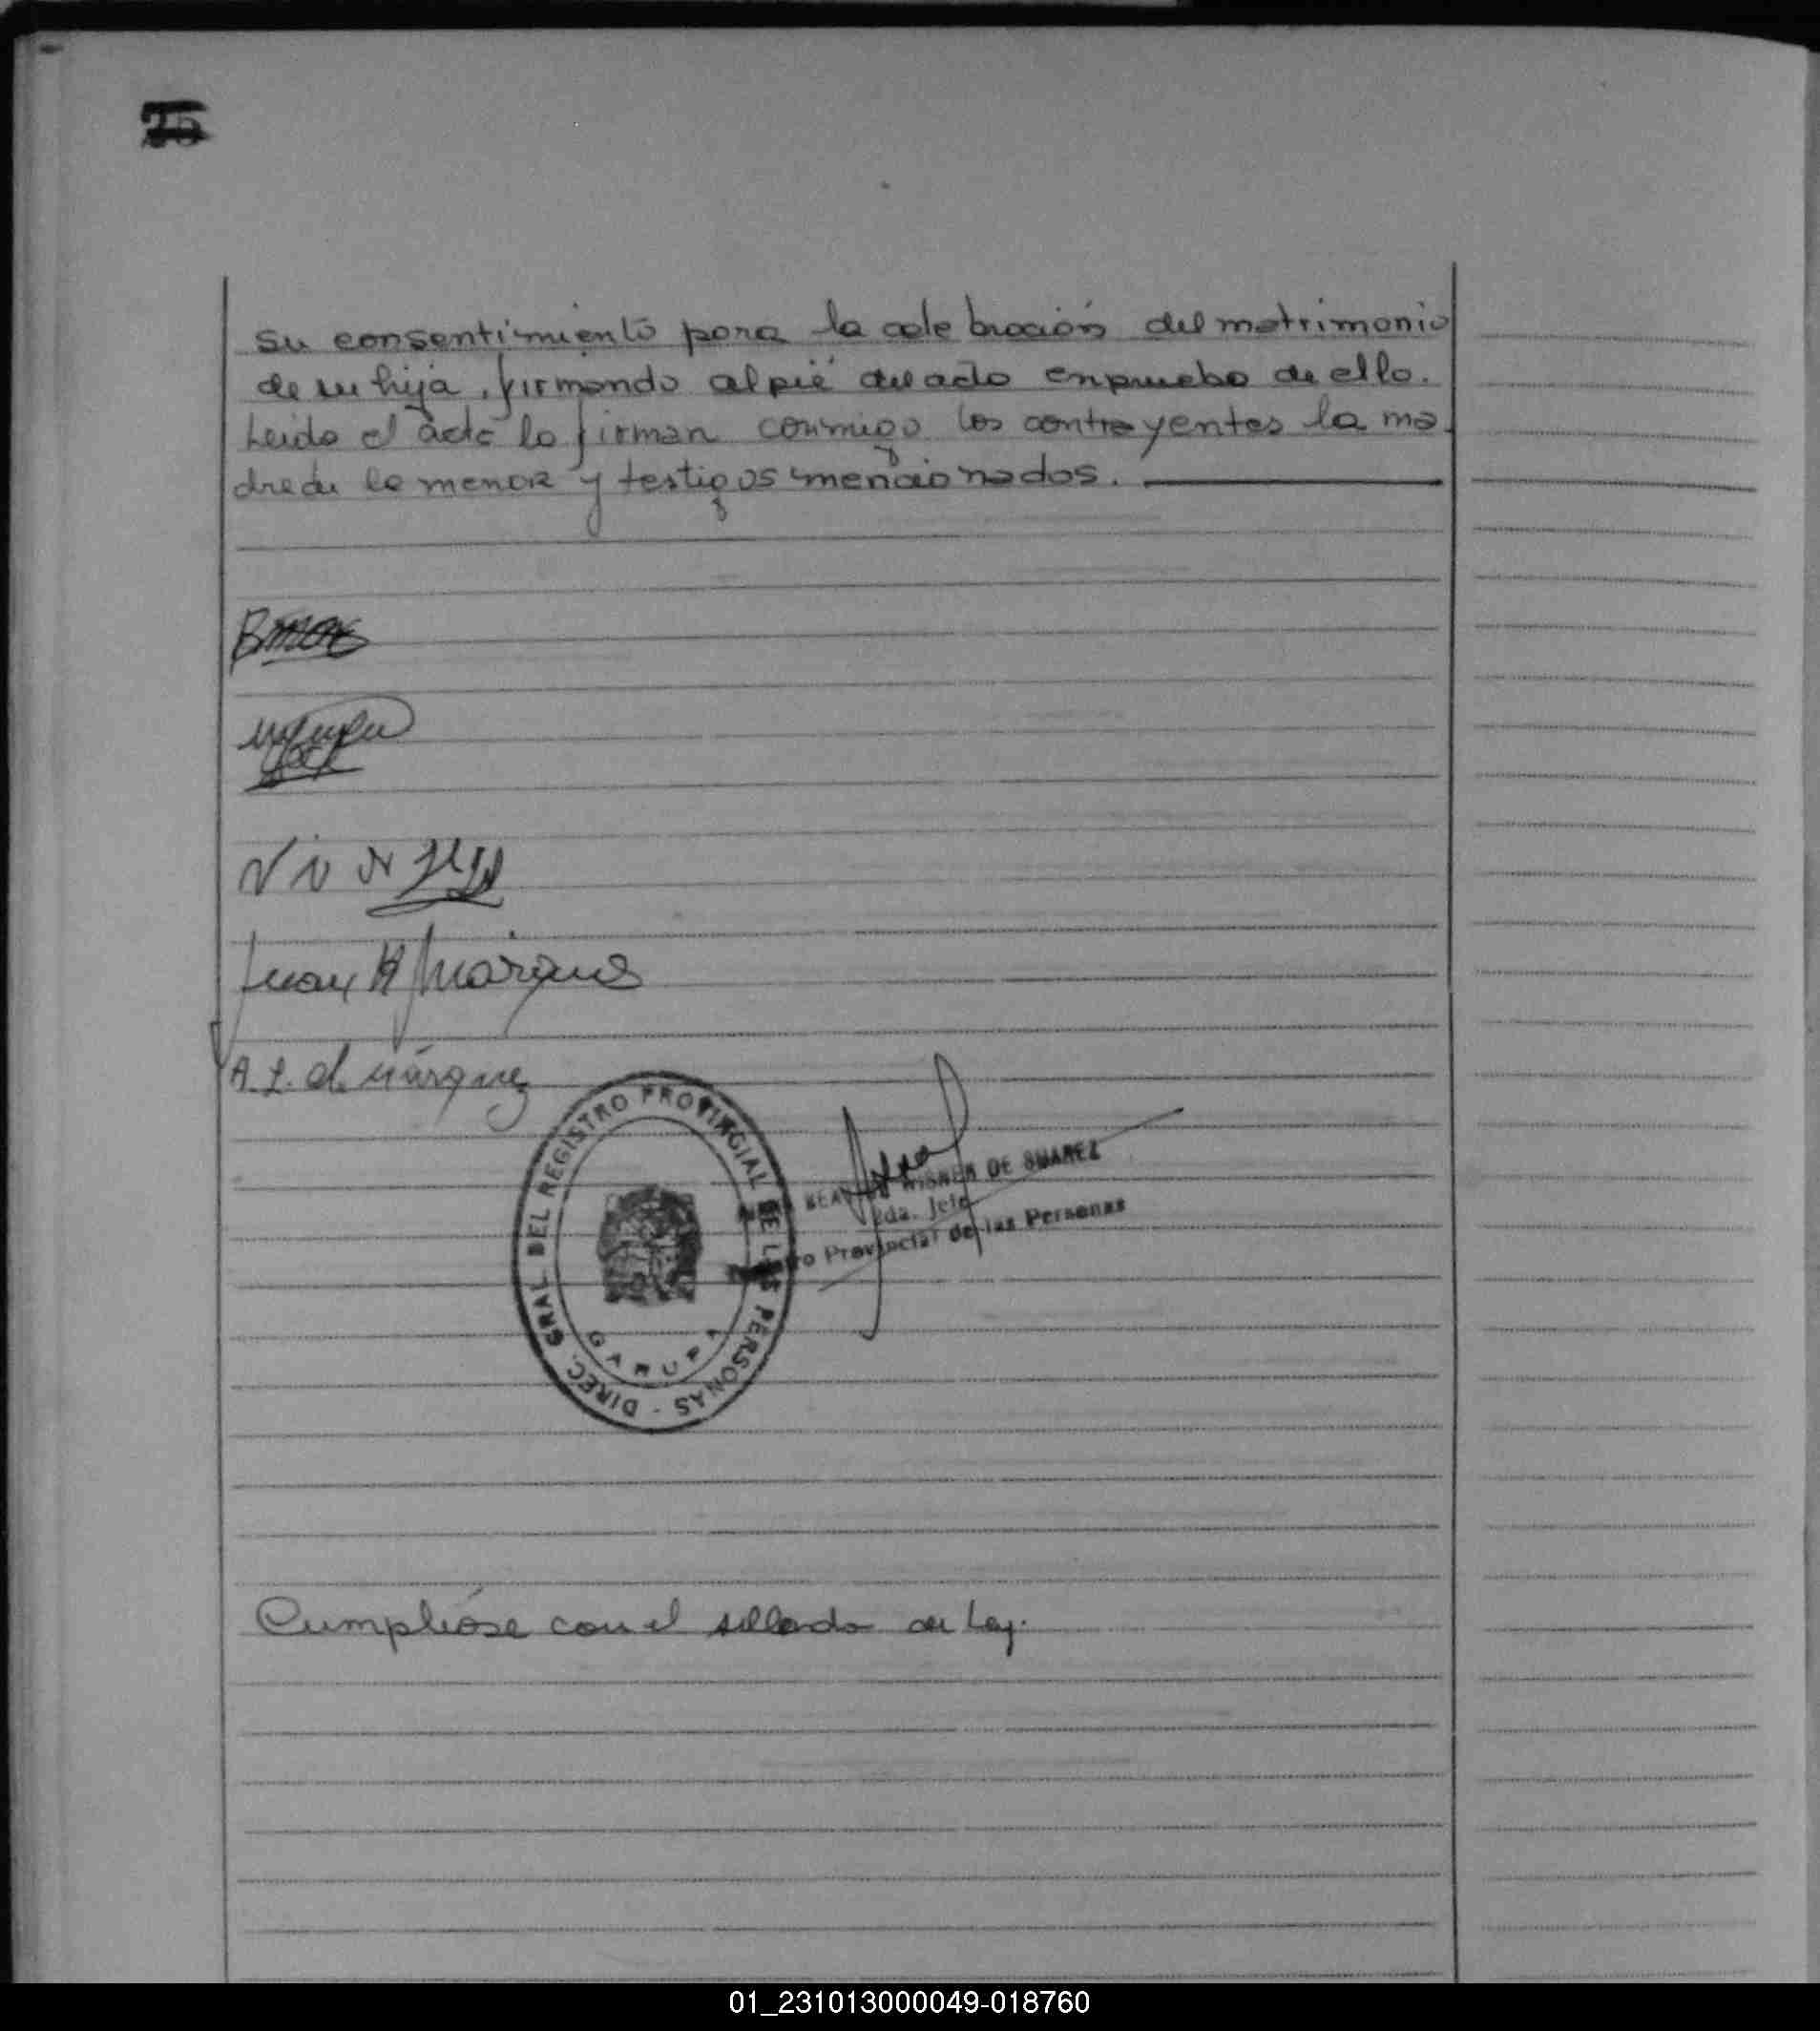 25
su consentimiento para la celebración del matrimonio
de su hija, firmando al pié del acto en prueba de ello.
Leida el acta la firman conmigo los contrayentes la ma
dre de la menor y testigos mencionados.
Juan A Márquez
A. L. de Márquez
DIREC. GRAL DEL REGISTRO PROVINCIAL DE LAS PERSONAS -
GARUPA
WISNER DE SUAREZ
2da. Jefe
Provincial de las Personas
Cumplióse con el sellado de Ley.
01_231013000049-018760